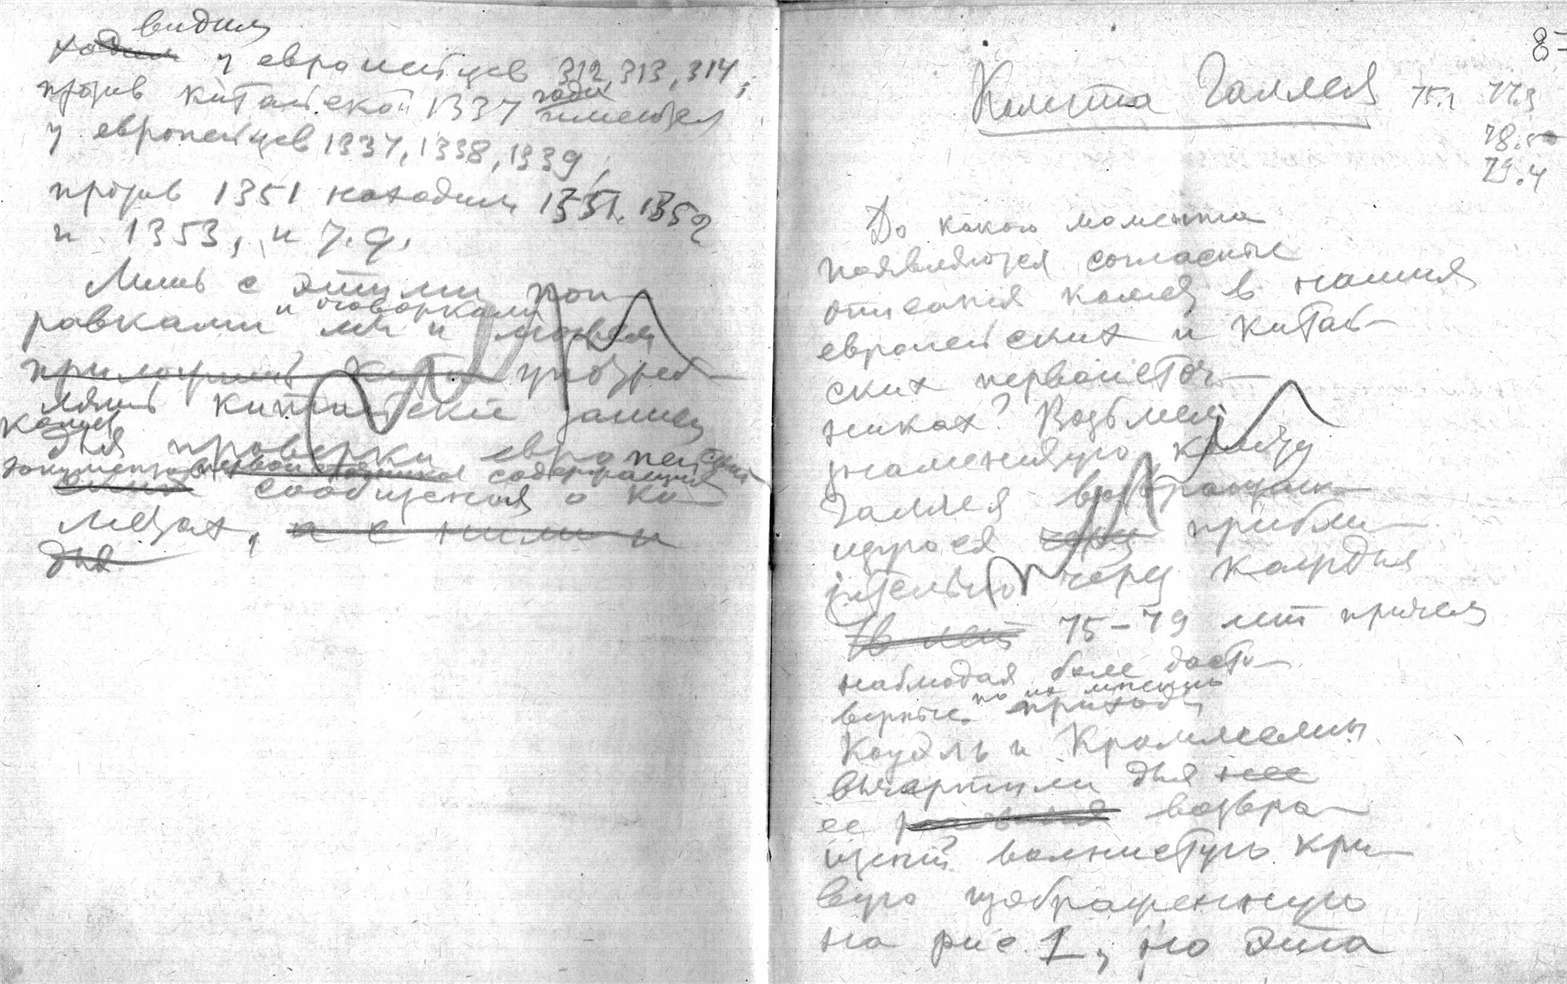 видим
ходим у европейцев 312, 313, 314;
против китайской 1337 года имеются
у европейцев 1337, 1338, 1339;
против 1351 находим 1351, 1352
и 1353, и т.д.
Лишь с этими поп-
равками и оговорками мы и можем
употреб-
лять китайские записи
для проверки европейских
документов содержащих
сообщения о ко-
метах, а с ними и
для
8
Комета Галлея 75.1 77.9
78.5
79.4
До какого момента
появляются согласные
описания комет в наших
европейских и китай-
ских первоисточ-
никах? Возьмем
знаменитую комету
Галлея возвращаю-
щуюся прибли-
зительно через каждые
75–79 лет причем
наблюдая более досто-
верные по их мнению приходы
Коуэль и Кроммелин
вычертили для нее
ее возвра-
щений волнистую кри-
вую изображенную
на рис. 1, но эта